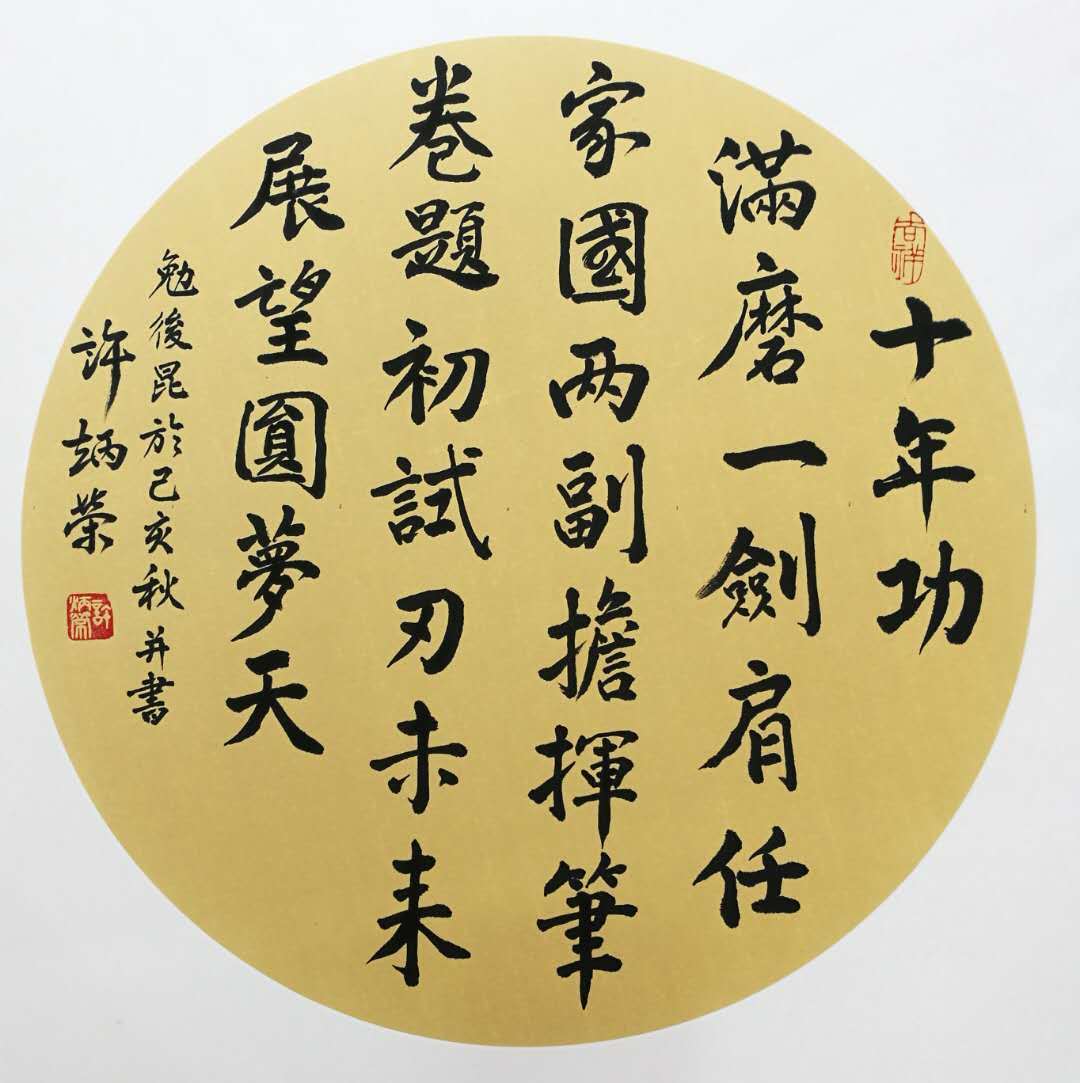 吉祥
十年功
滿磨一劍肩任
家國两副擔揮筆
卷題初試刃未来
展望圓夢天
勉後昆於己亥秋并書
許炳榮
許炳榮